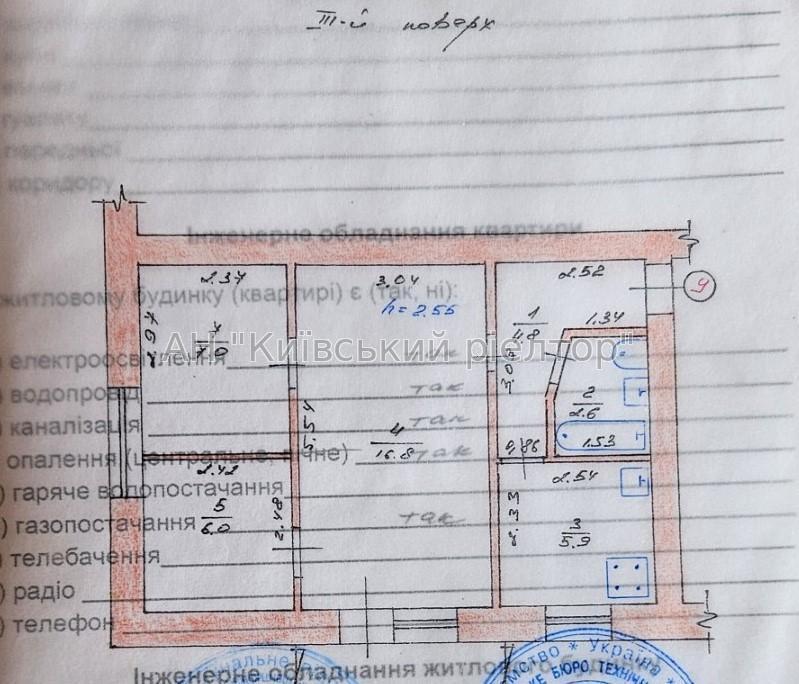 III-й поверх
коридору
Інженерне обладнання квартири
житловому будинку (квартирі) є (так, ні):
АН "Київський ріелтор"
2.37
3.04
h = 2.55
2.52
9
1
4.8
1.34
2.97
7.0
електроосвітлення
так
водопровід
так
2
2.6
каналізація
так
5.54
4
16.8
0,86
1.53
опалення (центральне, пічне)
так
2.42
2.54
гаряче водопостачання
5
6.0
2.48
2.33
3
5.9
газопостачання
так
телебачення
радіо
телефон
Інженерне обладнання житлового будинку
Україна
БЮРО ТЕХНІЧ